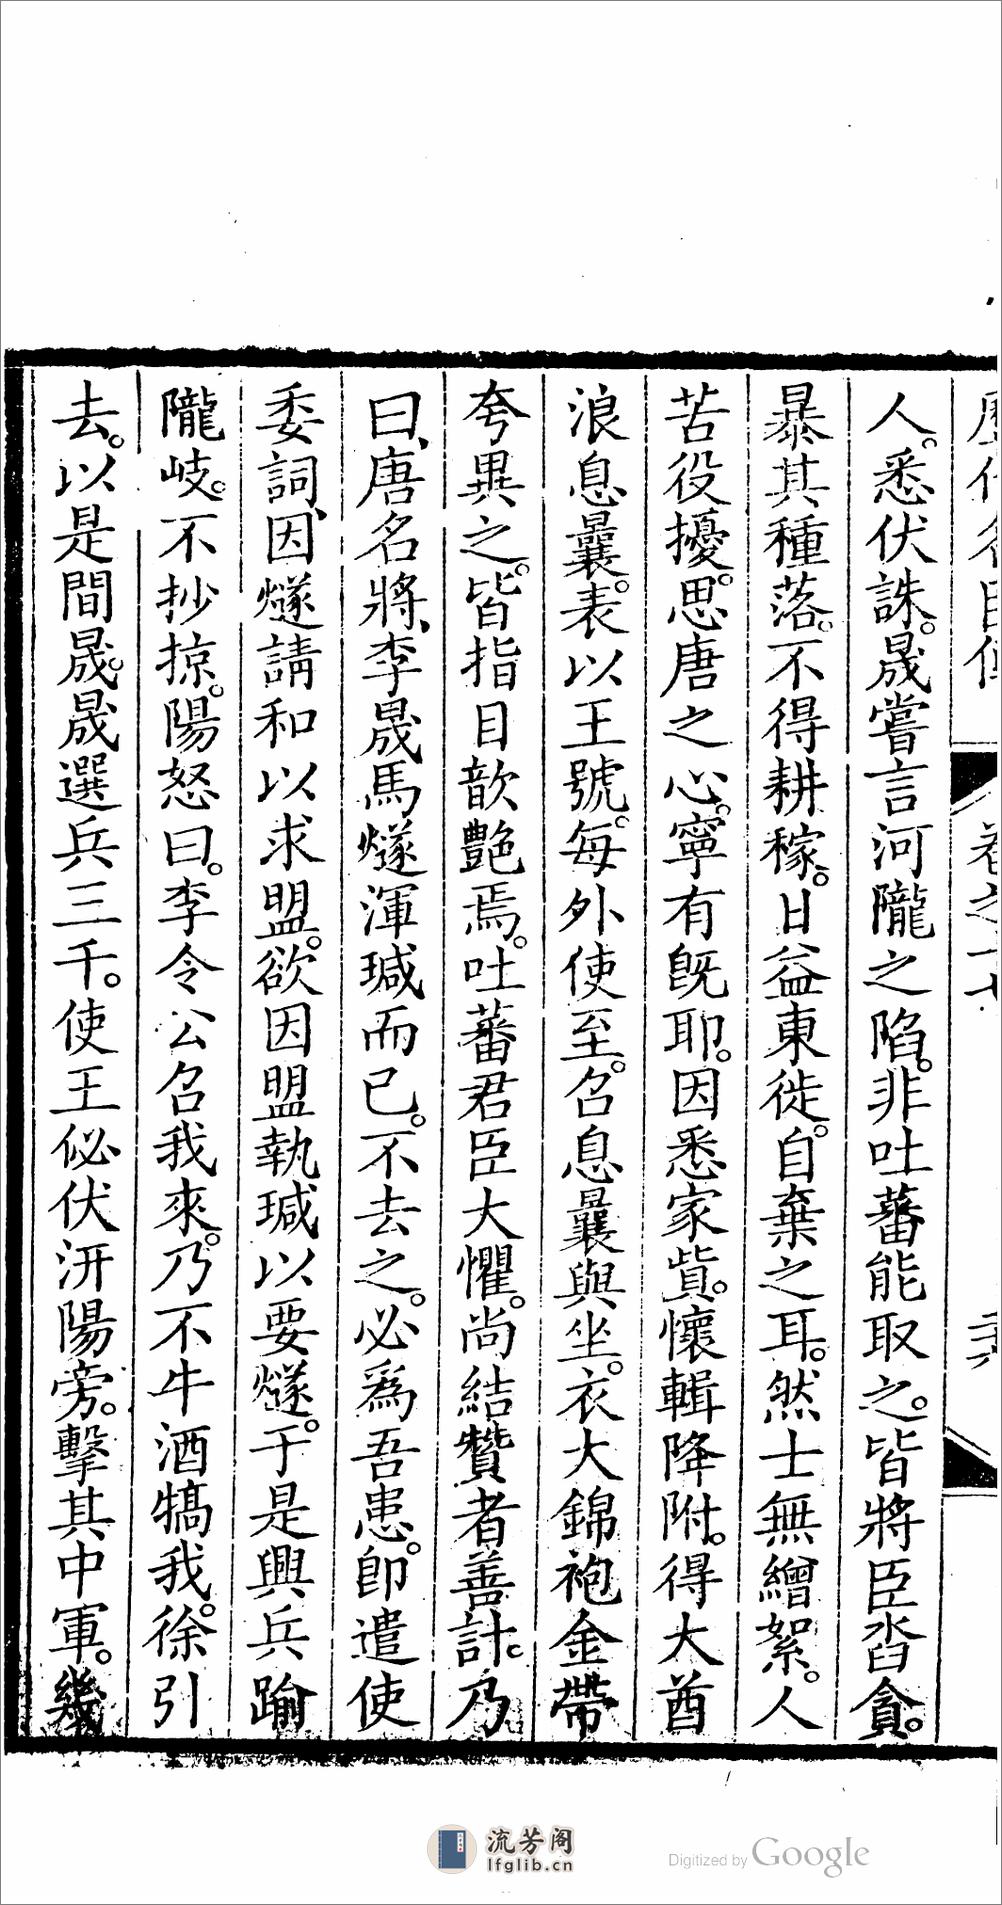 人。悉伏誅。晟嘗言河隴之陷。非吐蕃能取之。皆將臣沓貪。
暴其種落。不得耕稼。日益東徙。自棄之耳。然士無繒絮。人
苦役擾。思唐之心。寧有旣耶。因悉家貲。懷輯降附。得大酋
浪息曩。表以王號。每外使至。召息曩與坐。衣大錦袍金帶
夸異之。皆指目歆艶焉。吐蕃君臣大懼。尚結贊者善計。乃
曰、唐名將、李晟馬燧渾瑊而已。不去之。必爲吾患。卽遣使
委詞、因燧請和以求盟。欲因盟執瑊以要燧。于是興兵踰
隴岐。不抄掠。陽怒曰。李令公召我來。乃不牛酒犒我。徐引
去。以是間晟。晟選兵三千。使王佖伏汧陽旁。擊其中軍。幾
流芳阁
lfglib.cn
Digitized by Google